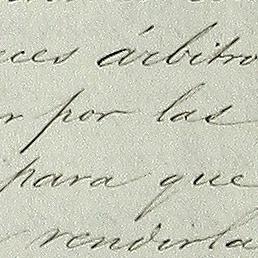 ces árbitro
r por las
para que
rendirla